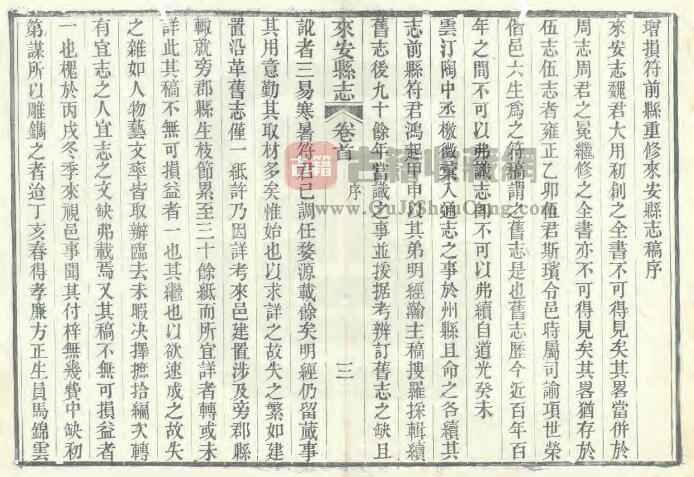 增損符前縣重修來安縣志稿序
來安志魏君大用初創之全書不可得見矣其畧當併於
周志周君之冕繼修之全書亦不可得見矣其畧猶存於
伍志伍志者雍正乙卯伍君斯璸令邑時屬司諭項世榮
偕邑六生爲之符稿謂之舊志是也舊志歷今近百年百
年之間不可以弗識志卽不可以弗續自道光癸未
雲汀陶中丞檄徵彙入通志之事於州縣且命之各續其
志前縣符君鴻起甲申以其弟明經瀚主稿搜羅採輯續
舊志後九十餘年當識之事並援据考辨訂舊志之缺且
來安縣志 卷首 序 三
訛者三易寒暑符君已調任婺源載餘矣明經仍留蕆事
其用意勤其取材多矣惟始也以求詳之故失之繁如建
置沿革舊志僅一紙許乃因詳考來邑建置涉及旁郡縣
輒就旁郡縣生枝節累至三十餘紙而所宜詳者轉或未
詳此其稿不無可損益者一也其繼也以欲速成之故失
之雜如人物藝文率皆取辦臨去未暇決擇摭拾編次轉
有宜志之人宜志之文缺弗載焉又其稿不無可損益者
一也槐於丙戌冬季來視邑事聞其付梓無幾費中缺初
第謀所以雕鐫之者迨丁亥春得孝廉方正生員馬錦雲
古籍收藏網
www.GuJiShouCang.com
古籍